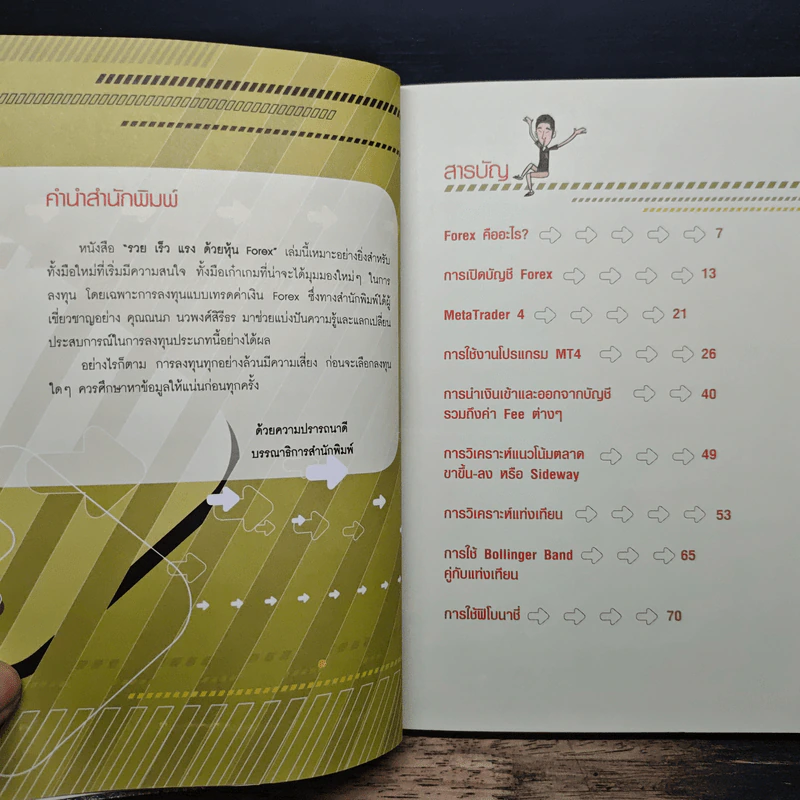 คำนำสำนักพิมพ์
หนังสือ "รวย เร็ว แรง ด้วยหุ้น Forex" เล่มนี้เหมาะอย่างยิ่งสำหรับ
ทั้งมือใหม่ที่เริ่มมีความสนใจ ทั้งมือเก๋าเกมที่น่าจะได้มุมมองใหม่ๆ ในการ
ลงทุน โดยเฉพาะการลงทุนแบบเทรดค่าเงิน Forex ซึ่งทางสำนักพิมพ์ได้ผู้
เชี่ยวชาญอย่าง คุณณนภ นวพงศ์สิริธร มาช่วยแบ่งปันความรู้และแลกเปลี่ยน
ประสบการณ์ในการลงทุนประเภทนี้อย่างได้ผล
อย่างไรก็ตาม การลงทุนทุกอย่างล้วนมีความเสี่ยง ก่อนจะเลือกลงทุน
ใดๆ ควรศึกษาหาข้อมูลให้แน่นก่อนทุกครั้ง
ด้วยความปรารถนาดี
บรรณาธิการสำนักพิมพ์
สารบัญ
Forex คืออะไร? 7
การเปิดบัญชี Forex 13
MetaTrader 4 21
การใช้งานโปรแกรม MT4 26
การนำเงินเข้าและออกจากบัญชี 40
รวมถึงค่า Fee ต่างๆ
การวิเคราะห์แนวโน้มตลาด 49
ขาขึ้น-ลง หรือ Sideway
การวิเคราะห์แท่งเทียน 53
การใช้ Bollinger Band 65
คู่กับแท่งเทียน
การใช้ฟิโบนาชี่ 70